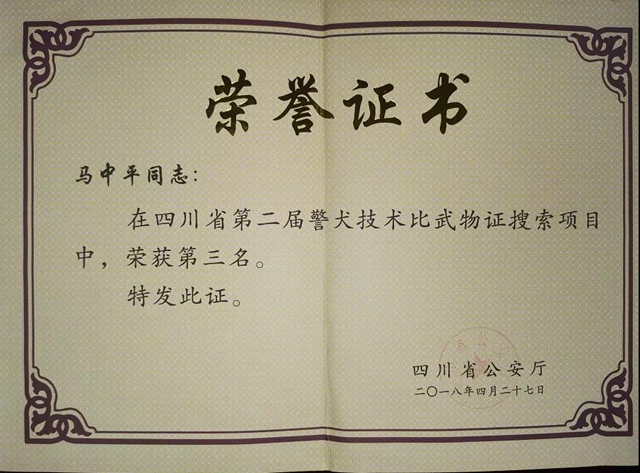 荣誉证书
马中平同志：
在四川省第二届警犬技术比武物证搜索项目
中，荣获第三名。
特发此证。
四川省公安厅
二〇一八年四月二十七日